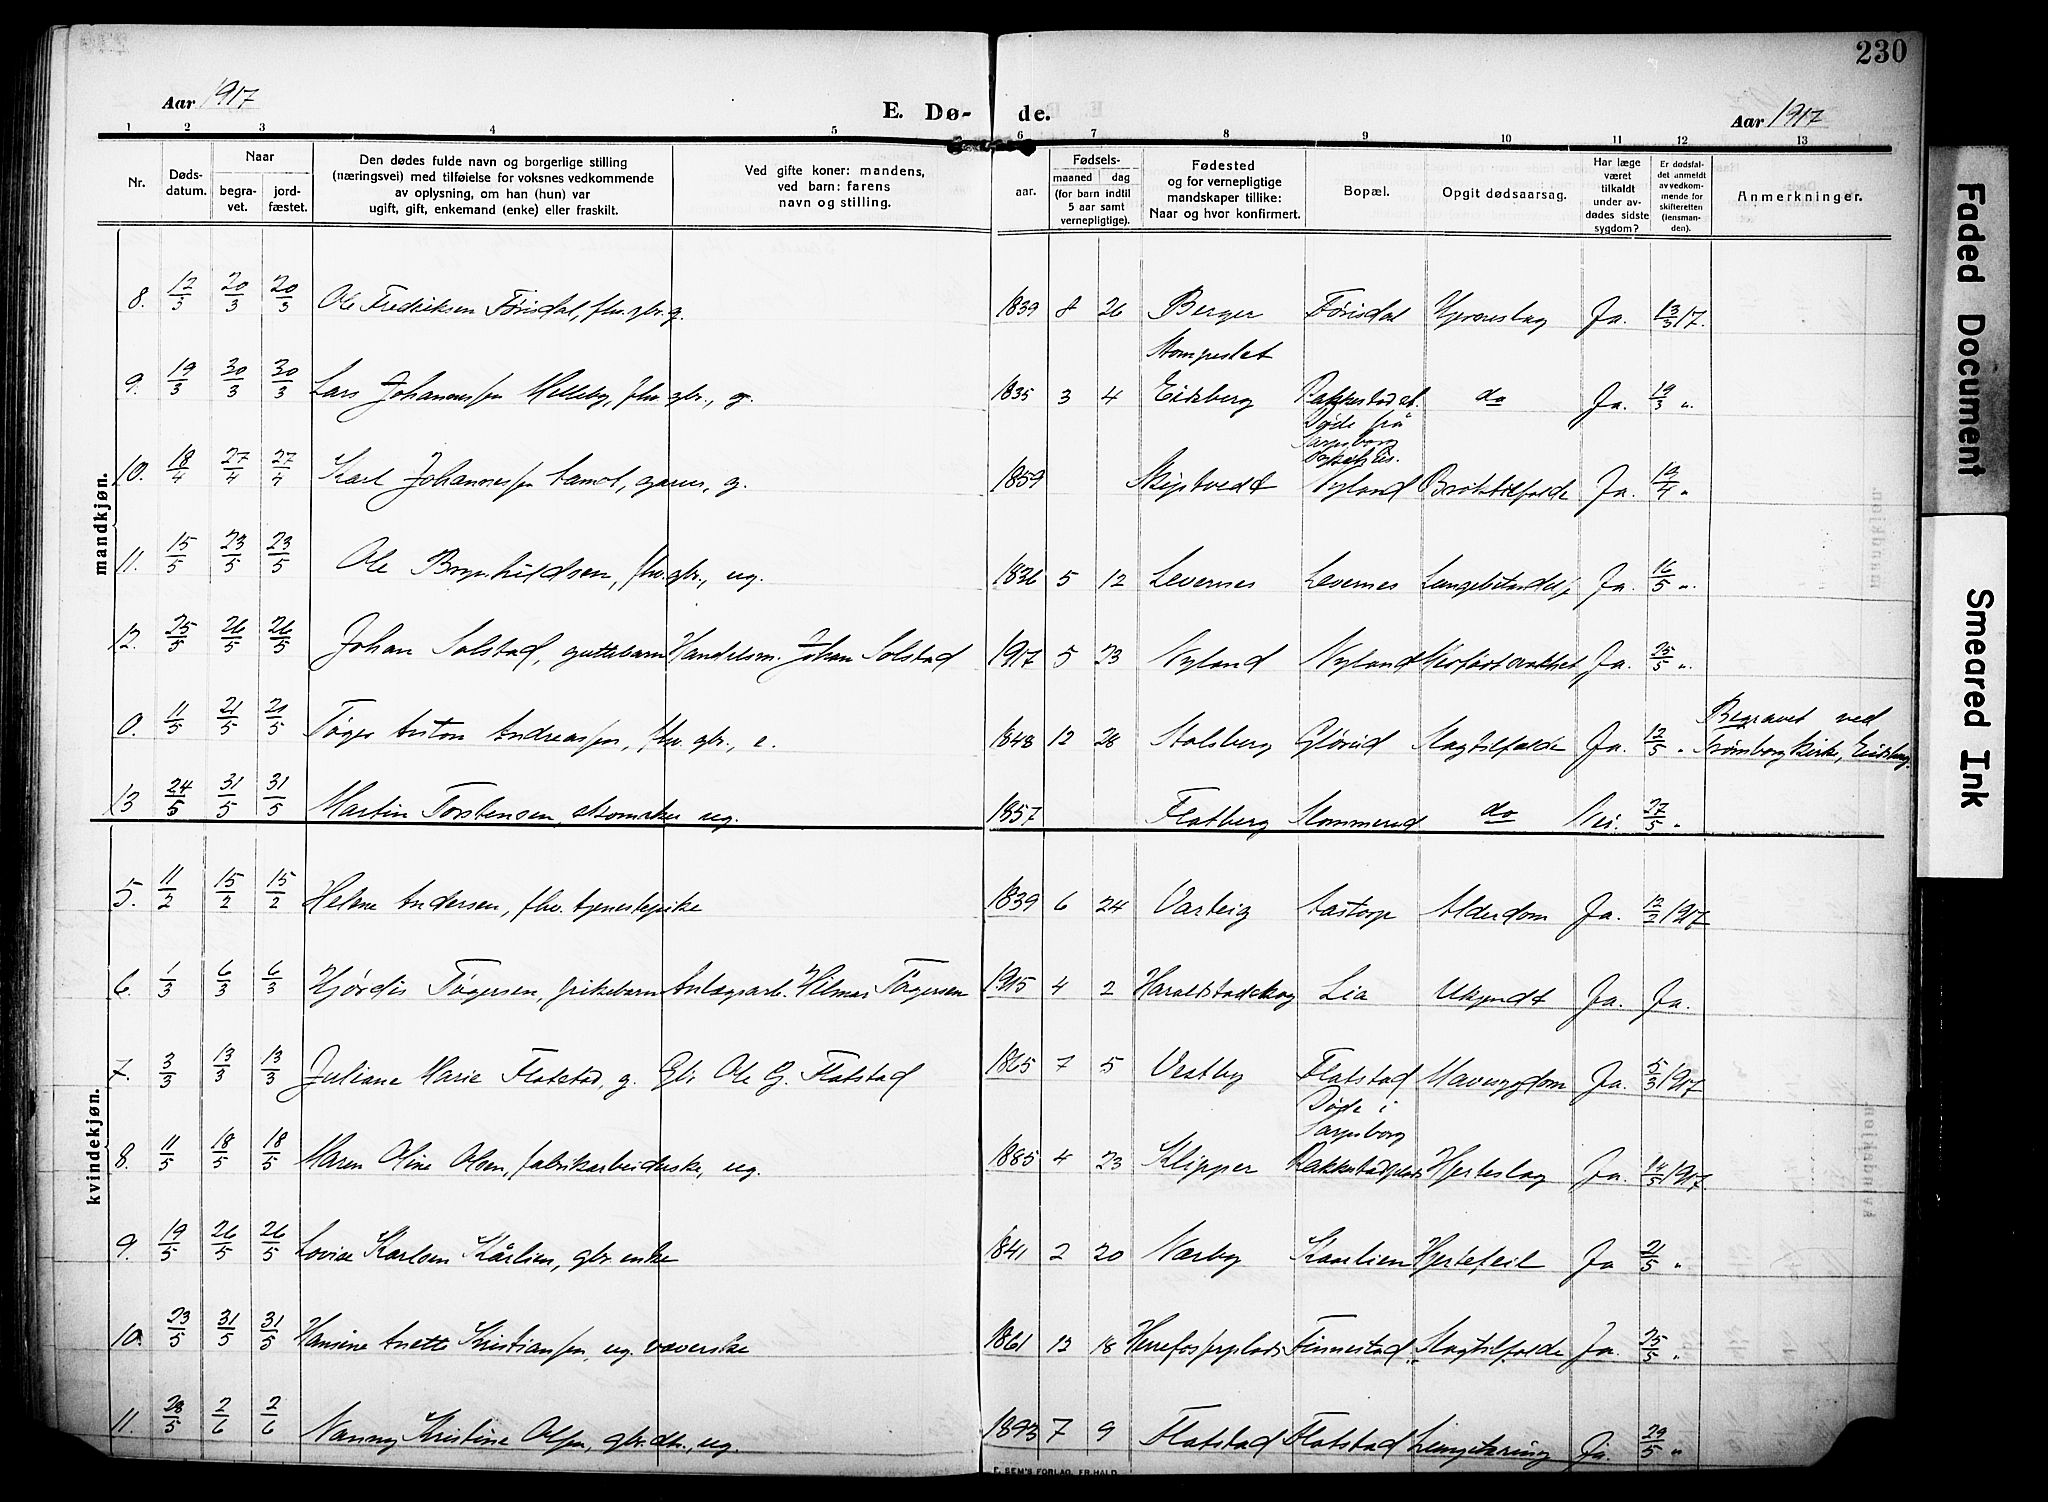 230
Aar 1917
E. Dø- de.
Aar 1917
1 2 3 4 5 6 7 8 9 10 11 12 13
Nr.
Døds-
datum.
Naar
begra-
vet.
jord-
fæstet.
Den dødes fulde navn og borgerlige stilling
(næringsvei) med tilføielse for voksnes vedkommende
av oplysning, om han (hun) var
ugift, gift, enkemand (enke) eller fraskilt.
Ved gifte koner: mandens,
ved barn: farens
navn og stilling.
aar.
Fødsels-
maaned dag
(for barn indtil
5 aar samt
vernepligtige).
Fødested
og for vernepligtige
mandskaper tillike:
Naar og hvor konfirmert.
Bopæl.
Opgit dødsaarsag.
Har læge
været
tilkaldt
under av-
dødes sidste
sygdom?
Er dødsfal-
det anmeldt
av vedkom-
mende for
skifteretten
(lensman-
den).
Anmerkninger.
mandkjøn.
8. 12/3 20/3 20/3 Ole Fredriksen Tørisdal, fhv. gbr. g. 1839 8 26 Berger Tørisdal Hjerneslag Ja. 13/3 17.
9. 19/3 30/3 30/3 Lars Johannessen Melleby, fhv. gbr., g. 1835 3 4 Eidsberg Rakkestad st. do Ja. 19/3 "
Døde på
Sarpsborg
sykehus.
10. 18/4 27/4 27/4 Karl Johannessen Lamot, garver, g. 1859 Skiptvedt Nyland Brøkktilfælde Ja. 19/4 "
11. 15/5 23/5 23/5 Ole Brynhildsen, fhv. gbr., ug. 1836 5 12 Levernes Levernes Lungebetændelse Ja. 16/5 "
12. 25/5 26/5 26/5 Johan Solstad, guttebarn Handelsm. Johan Solstad 1917 5 23 Nyland Nyland Ja. 25/5 "
0. 11/5 21/5 21/5 Tøger Anton Andreassen, fhv. gbr., e. 1848 12 28 Stolsberg Glørud Slagtilfælde Ja. 12/5 " Begravet ved
Trømborg kirke, Eidsberg.
13 24/5 31/5 31/5 Martin Torstensen, skomaker ug. 1857 Flatberg Mommerud do Nei. 27/5 "
kvindekjøn.
5. 11/2 15/2 15/2 Helene Andersen, fhv. tjenestepike 1839 6 24 Varteig Aastorp Alderdom Ja. 12/2 1917
6. 1/3 6/3 6/3 Hjørdis Tøgersen, pikebarn Anlægsarb. Hilmar Tøgersen 1915 4 2 Haraldstadskog Lia Ukjendt Ja. Ja.
7. 3/3 13/3 13/3 Juliane Marie Flatstad, g. Gbr. Ole G. Flatstad 1865 7 5 Vestby Flatstad Mavesygdom Ja. 5/3 1917
Døde i
Sarpsborg
8. 11/5 18/5 18/5 Maren Oline Olsen, fabrikarbeiderske, ug. 1885 4 23 Klipper Rakkestadplads Hjerteslag Ja. 14/5 1917.
9. 19/5 26/5 26/5 Lovise Karlsen Kårlien, gbr. enke 1841 2 20 Nærby Kaarlien Hjertefeil Ja 21/5 "
10. 23/5 31/5 31/5 Hansine Anette Kristiansen, ug. væverske 1861 12 18 Finnestad Slagtilfælde Ja. 25/5 "
11. 28/5 2/6 2/6 Nanny Kristine Olsen, gbr. dtr., ug. 1893 7 9 Flatstad Flatstad Lungetæring Ja. 29/5 "
E. SEM'S FORLAG, FR.HALD
Faded Document
Smeared Ink